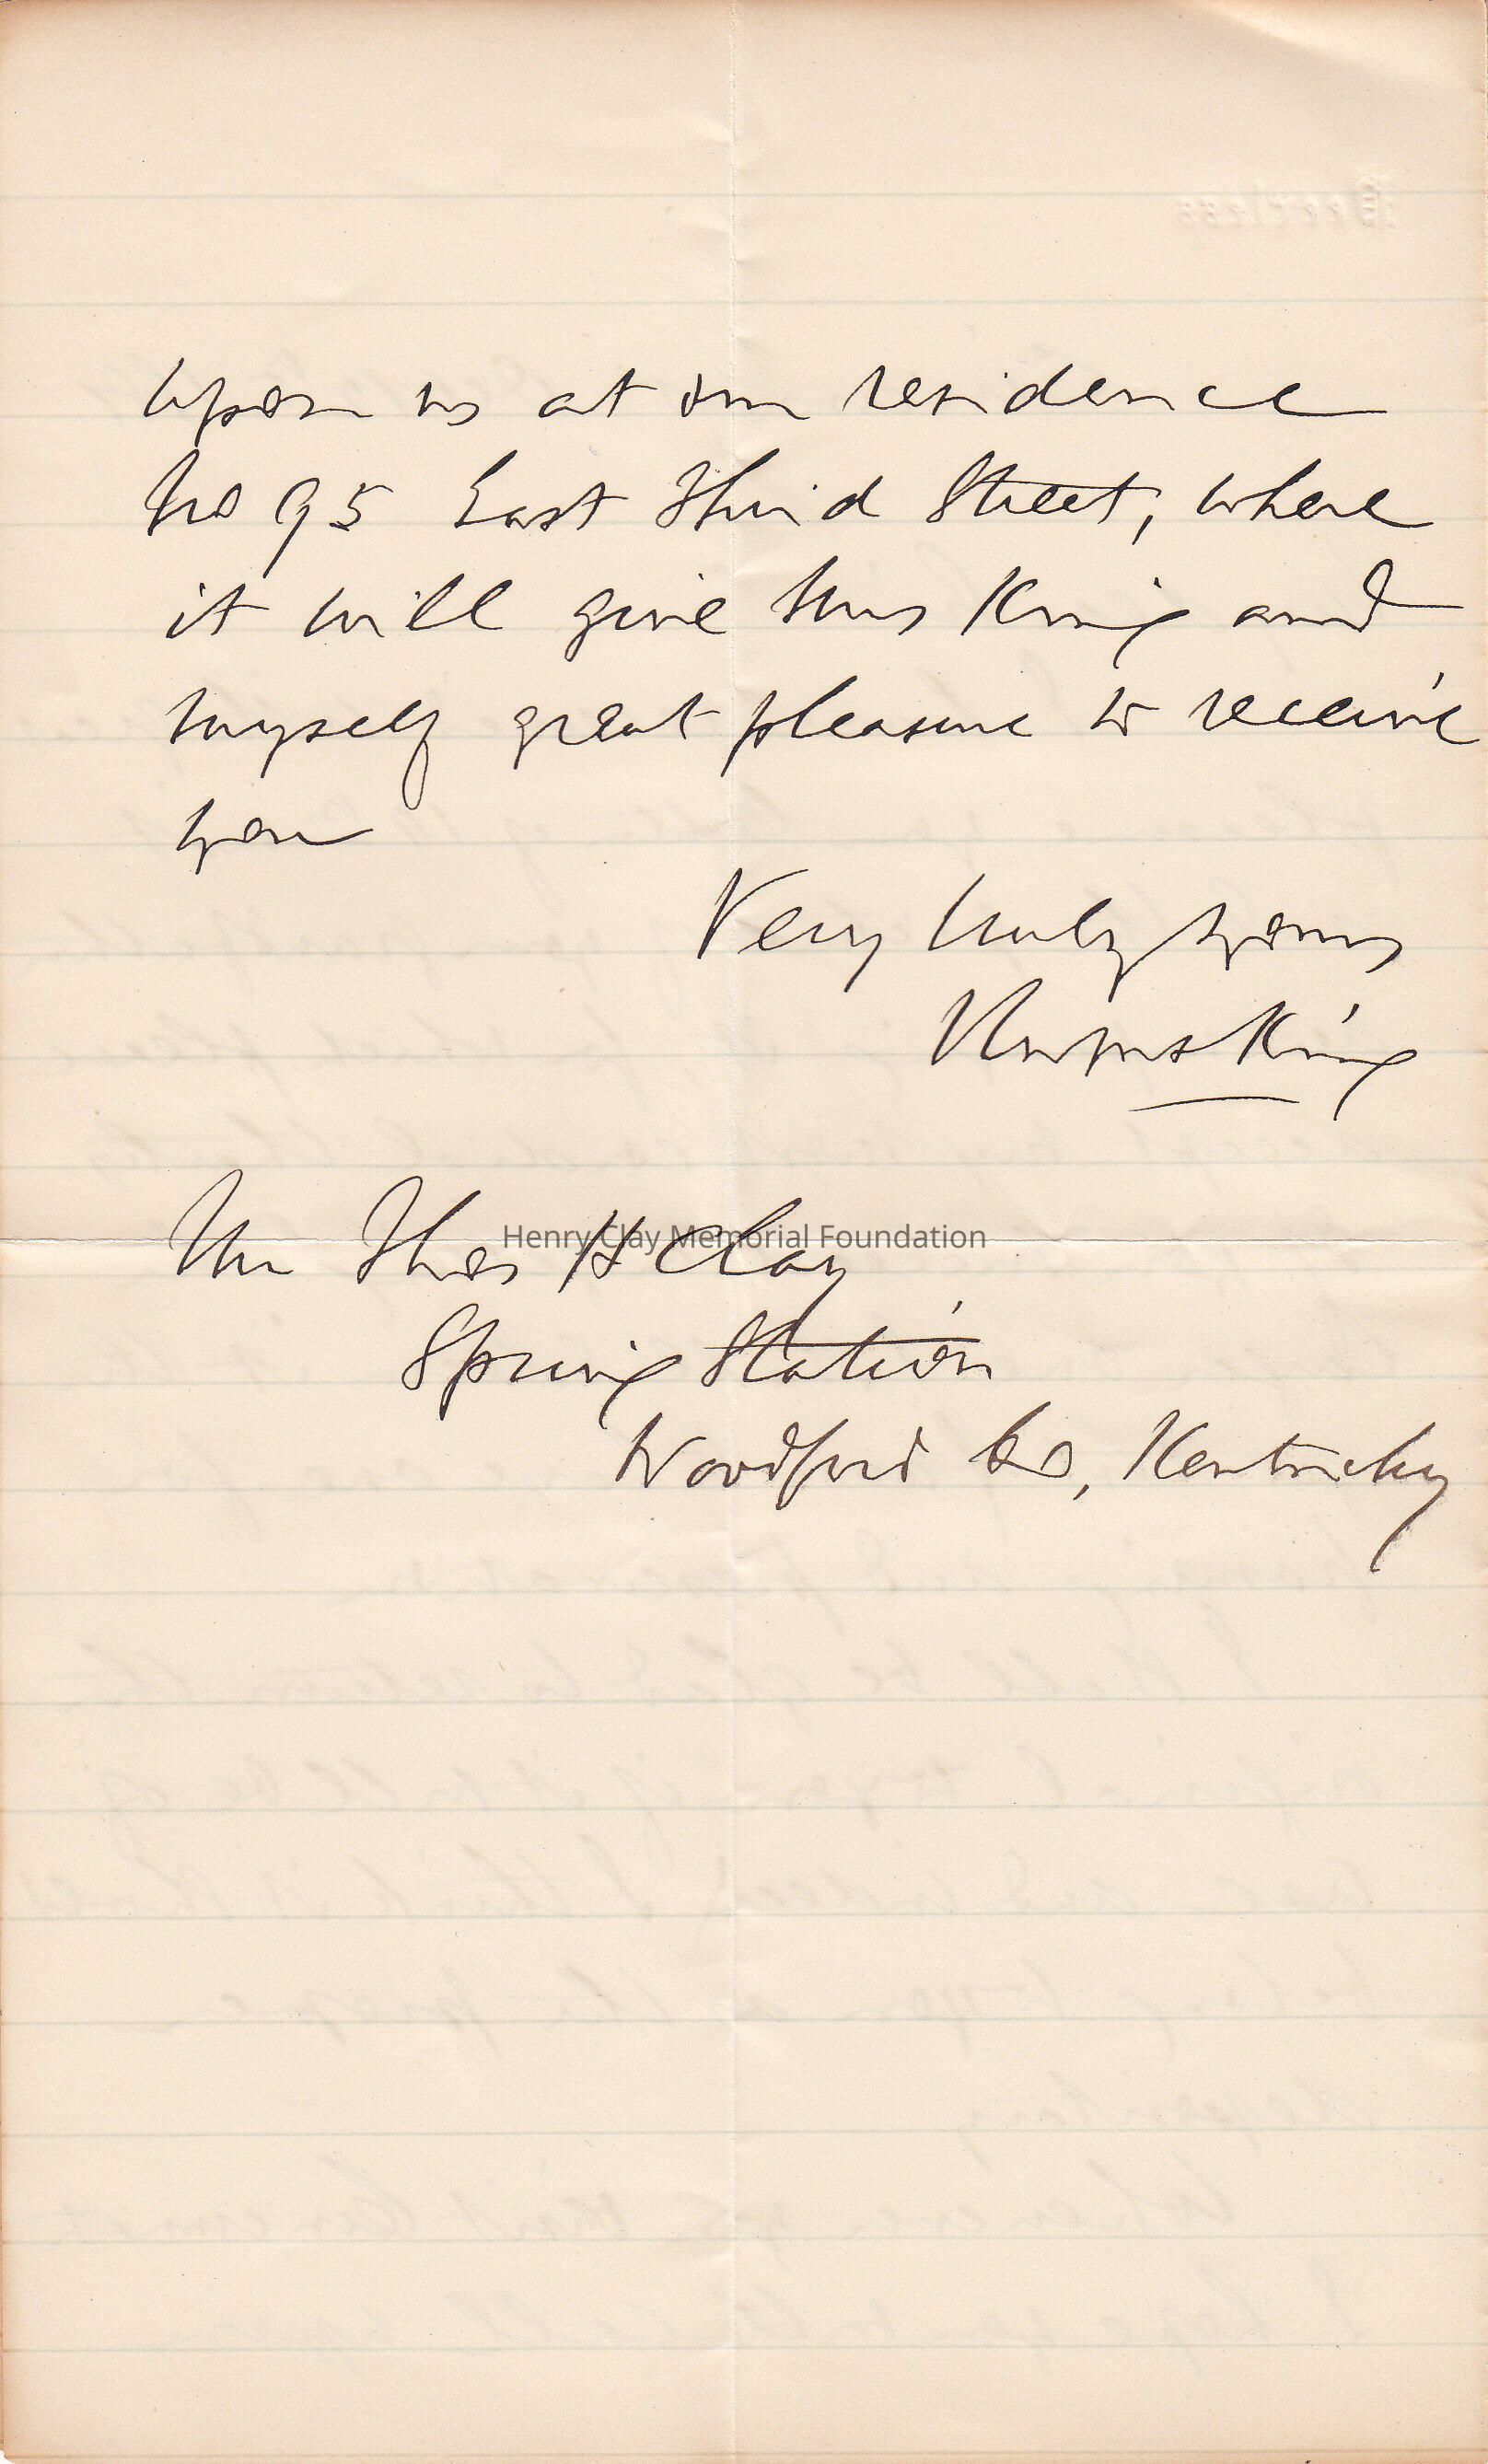 upon us at our residence
No 95 East Third Street, where
it will give Mrs King and
myself great pleasure to receive
you
Very truly yours
Rufus King
Mr Thos H Clay
Henry Clay Memorial Foundation
Spring Station
Woodford Co, Kentucky